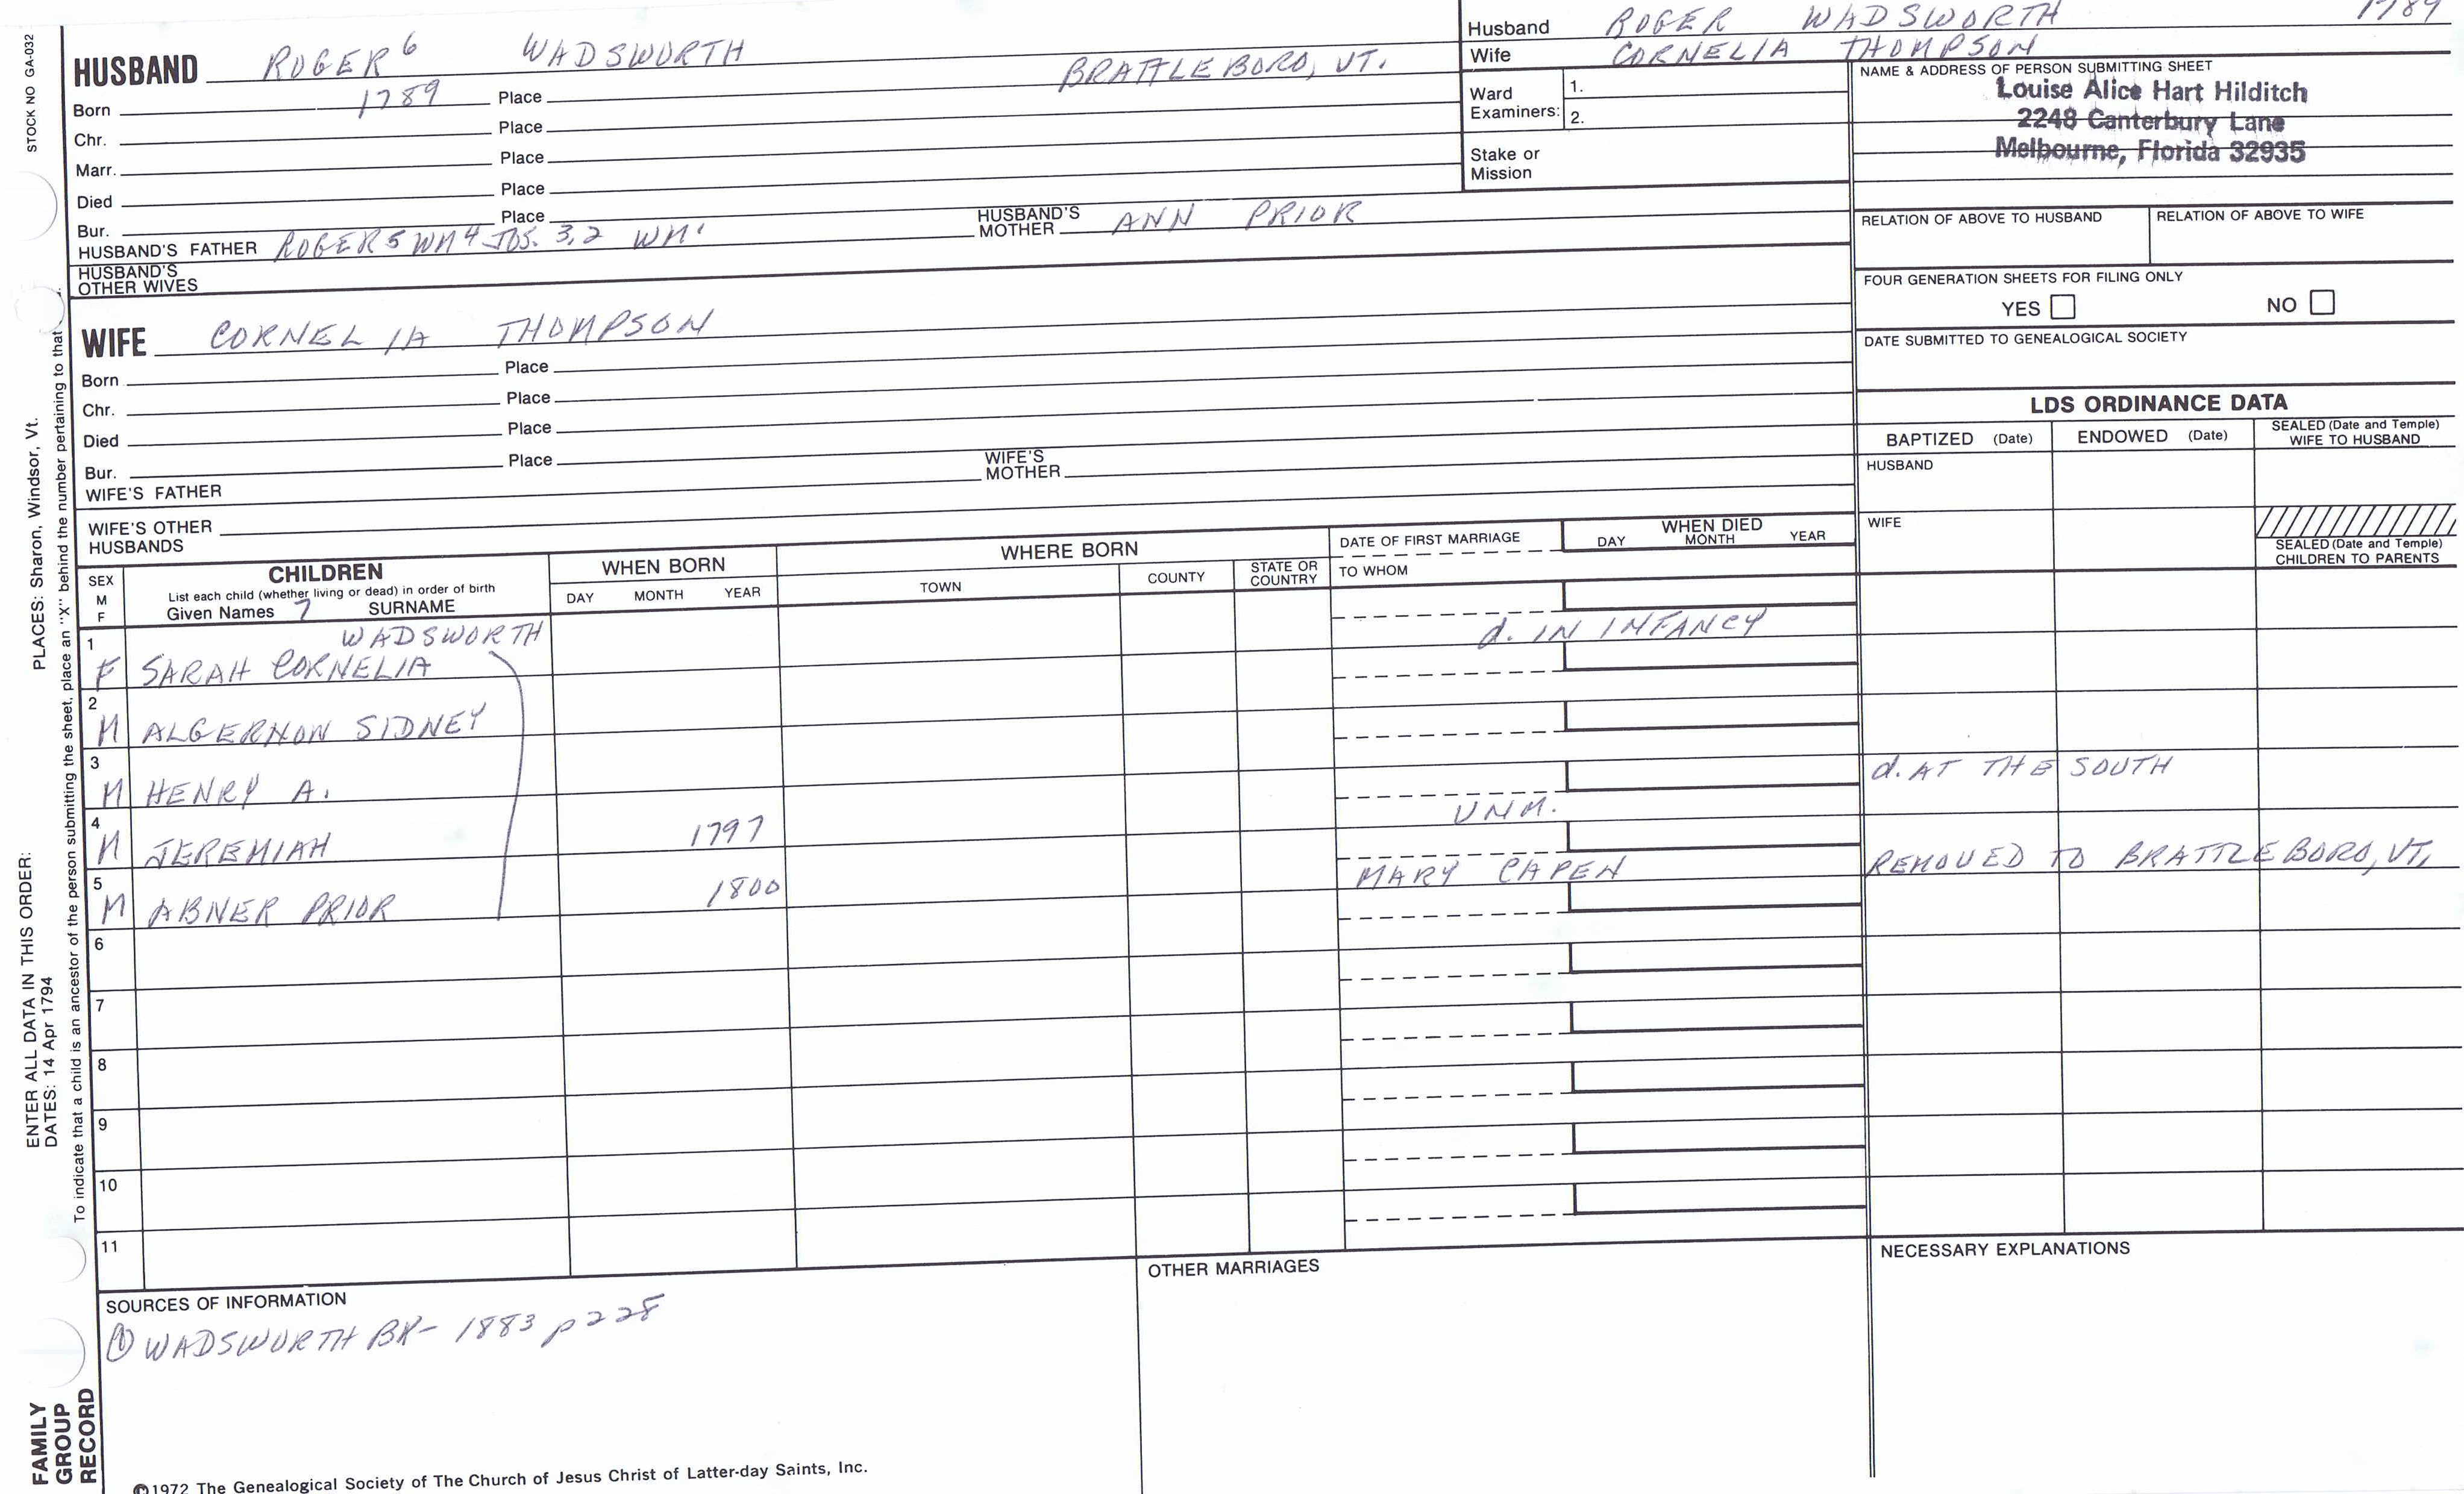 STOCK NO GA-032
HUSBAND ROGER 6 WADSWORTH
Born 1789 Place BRATTLEBORO, VT.
Chr. Place
Marr. Place
Died Place
Bur. Place
HUSBAND'S FATHER ROGER 5 WM 4 JOS. 3,2 WM' HUSBAND'S MOTHER ANN PRIOR
HUSBAND'S OTHER WIVES
Husband ROGER WADSWORTH 1789
Wife CORNELIA THOMPSON
Ward Examiners: 1.
2.
Stake or Mission
NAME & ADDRESS OF PERSON SUBMITTING SHEET
Louise Alice Hart Hilditch
2248 Canterbury Lane
Melbourne, Florida 32935
RELATION OF ABOVE TO HUSBAND RELATION OF ABOVE TO WIFE
FOUR GENERATION SHEETS FOR FILING ONLY
YES NO
DATE SUBMITTED TO GENEALOGICAL SOCIETY
WIFE CORNELIA THOMPSON
Born Place
Chr. Place
Died Place
Bur. Place
WIFE'S FATHER WIFE'S MOTHER
WIFE'S OTHER HUSBANDS
LDS ORDINANCE DATA
BAPTIZED (Date) ENDOWED (Date) SEALED (Date and Temple) WIFE TO HUSBAND
HUSBAND
WIFE
SEALED (Date and Temple) CHILDREN TO PARENTS
SEX M F
CHILDREN
List each child (whether living or dead) in order of birth
Given Names 7 SURNAME
WHEN BORN
DAY MONTH YEAR
WHERE BORN
TOWN COUNTY STATE OR COUNTRY
DATE OF FIRST MARRIAGE
TO WHOM
WHEN DIED
DAY MONTH YEAR
1 WADSWORTH
F SARAH CORNELIA d. IN INFANCY
2
M ALGERNON SIDNEY
3
M HENRY A. d. AT THE SOUTH
4
M JEREMIAH 1797 UNM.
5
M ABNER PRIOR 1800 MARY CAPEN REMOVED TO BRATTLEBORO, VT.
6
7
8
9
10
11
SOURCES OF INFORMATION
① WADSWORTH BK- 1883 p 228
OTHER MARRIAGES
NECESSARY EXPLANATIONS
©1972 The Genealogical Society of The Church of Jesus Christ of Latter-day Saints, Inc.
PLACES: Sharon, Windsor, Vt.
ENTER ALL DATA IN THIS ORDER:
DATES: 14 Apr 1794
To indicate that a child is an ancestor of the person submitting the sheet, place an "X" behind the number pertaining to that
FAMILY
GROUP
RECORD